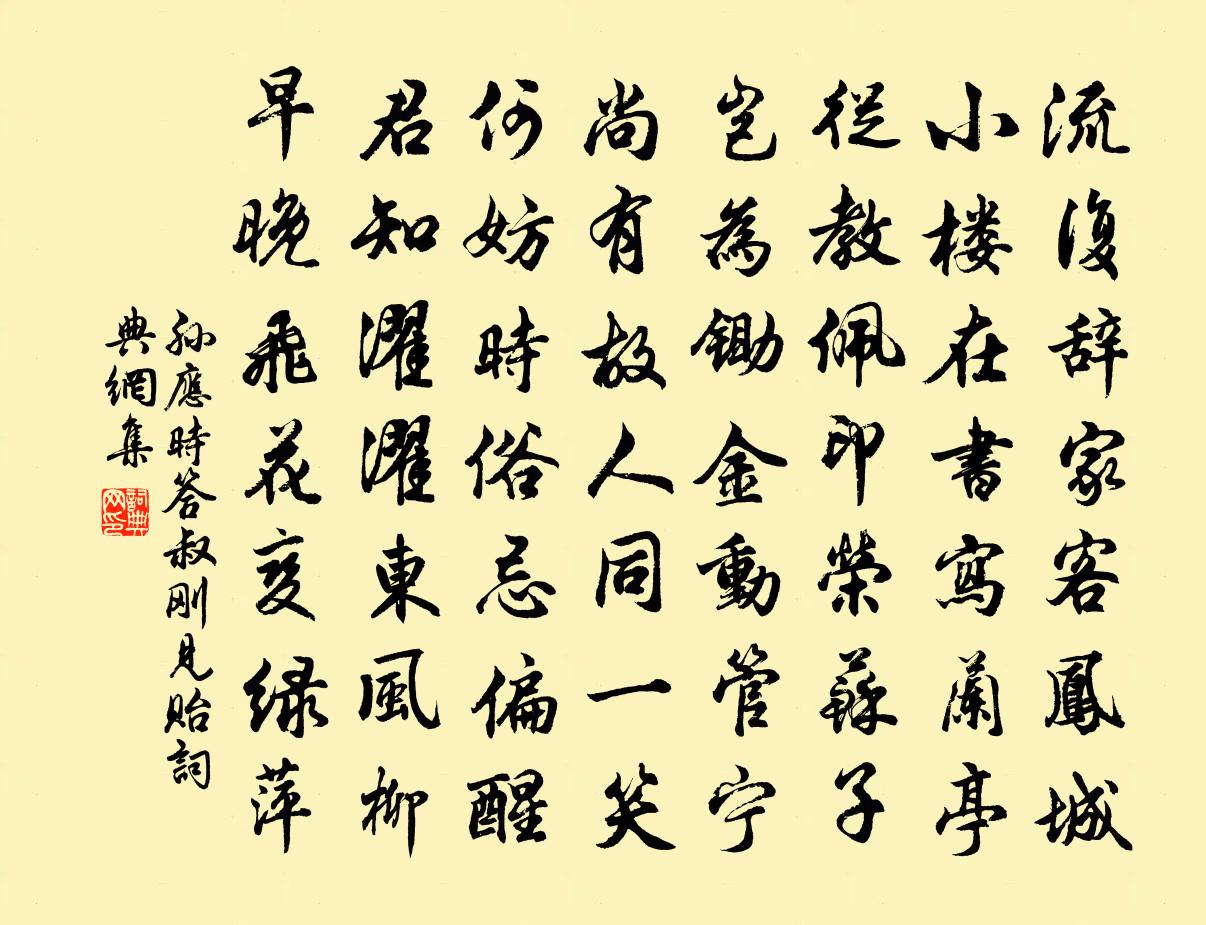 流復辞家客鳳城
小楼在書寫蘭亭
從教佩印榮蘇子
岂為鋤金動管宁
尚有故人同一笑
何妨時俗忌偏醒
君知濯濯東風柳
早晚飛花变绿萍
孙應時答叔刚見貽詞
典網集
詞典
网印